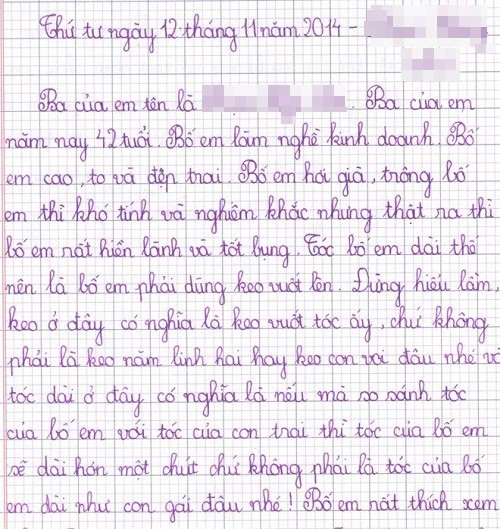 Thứ tư ngày 12 tháng 11 năm 2014 -
Ba của em tên là . Ba của em
năm nay 42 tuổi. Bố em làm nghề kinh doanh. Bố
em cao, to và đẹp trai. Bố em hơi già, trông bố
em thì khó tính và nghiêm khắc nhưng thật ra thì
bố em rất hiền lành và tốt bụng. Tóc bố em dài thế
nên là bố em phải dùng keo vuốt lên. Đừng hiểu lầm,
keo ở đây có nghĩa là keo vuốt tóc ấy, chứ không
phải là keo năm linh hai hay keo con voi đâu nhé và
tóc dài ở đây có nghĩa là nếu mà so sánh tóc
của bố em với tóc của con trai thì tóc của bố em
sẽ dài hơn một chút chứ không phải là tóc của bố
em dài như con gái đâu nhé! Bố em rất thích xem